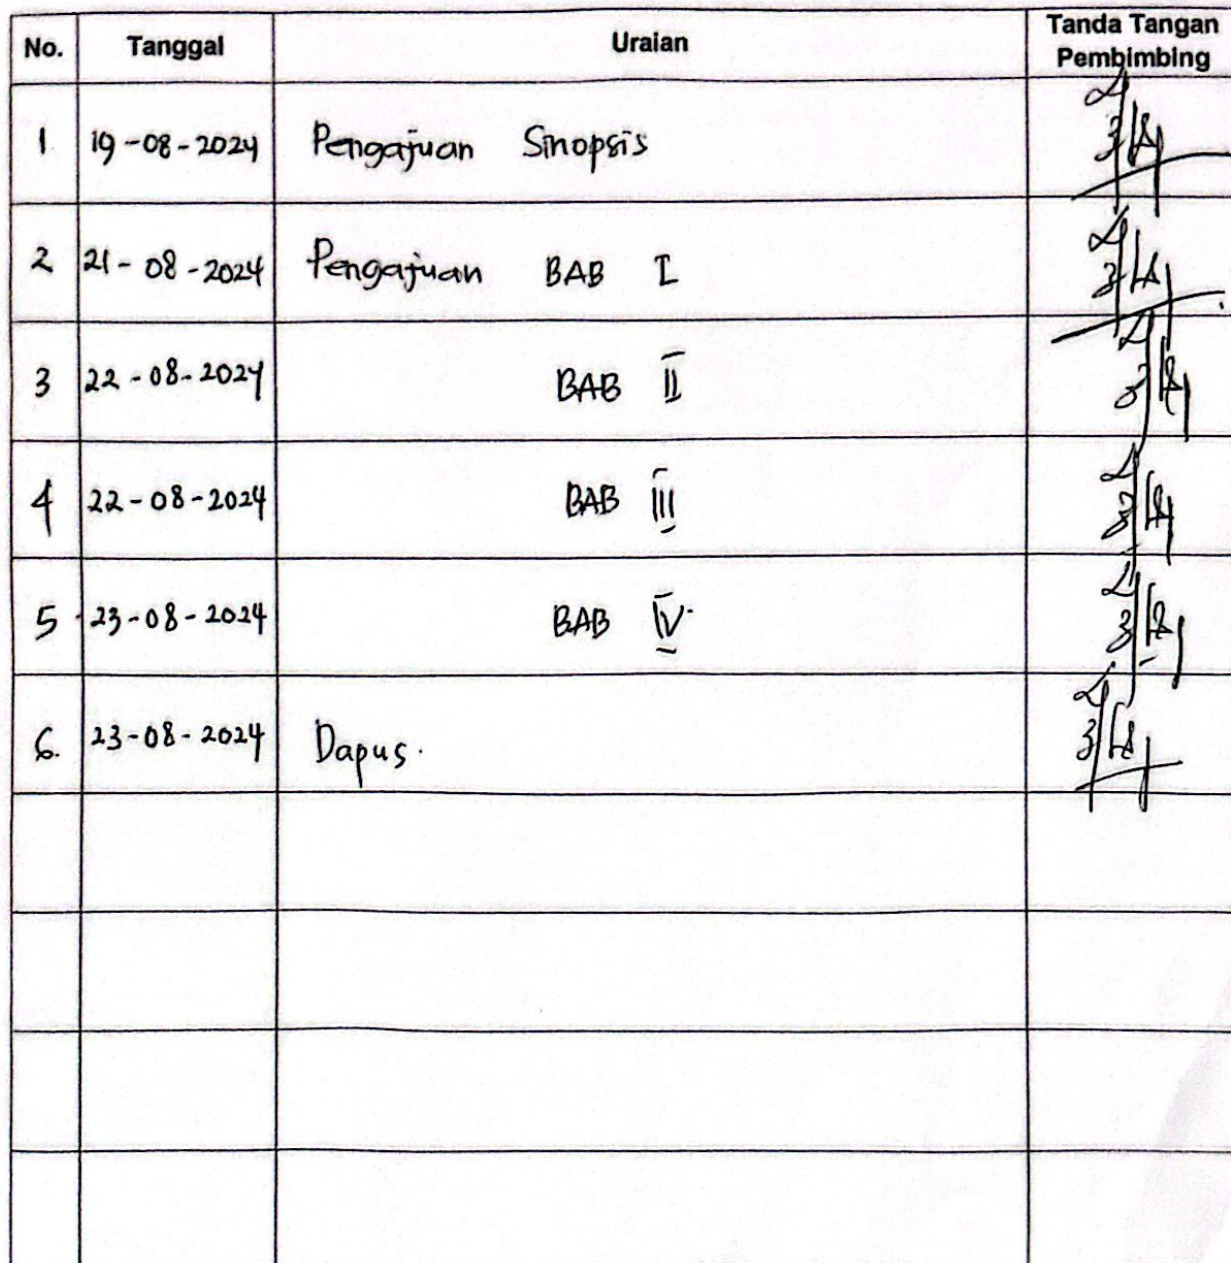 No. Tanggal Uraian Tanda Tangan Pembimbing
1 19-08-2024 Pengajuan Sinopsis
2 21-08-2024 Pengajuan BAB I
3 22-08-2024 BAB II
4 22-08-2024 BAB III
5 23-08-2024 BAB IV
6. 23-08-2024 Dapus.